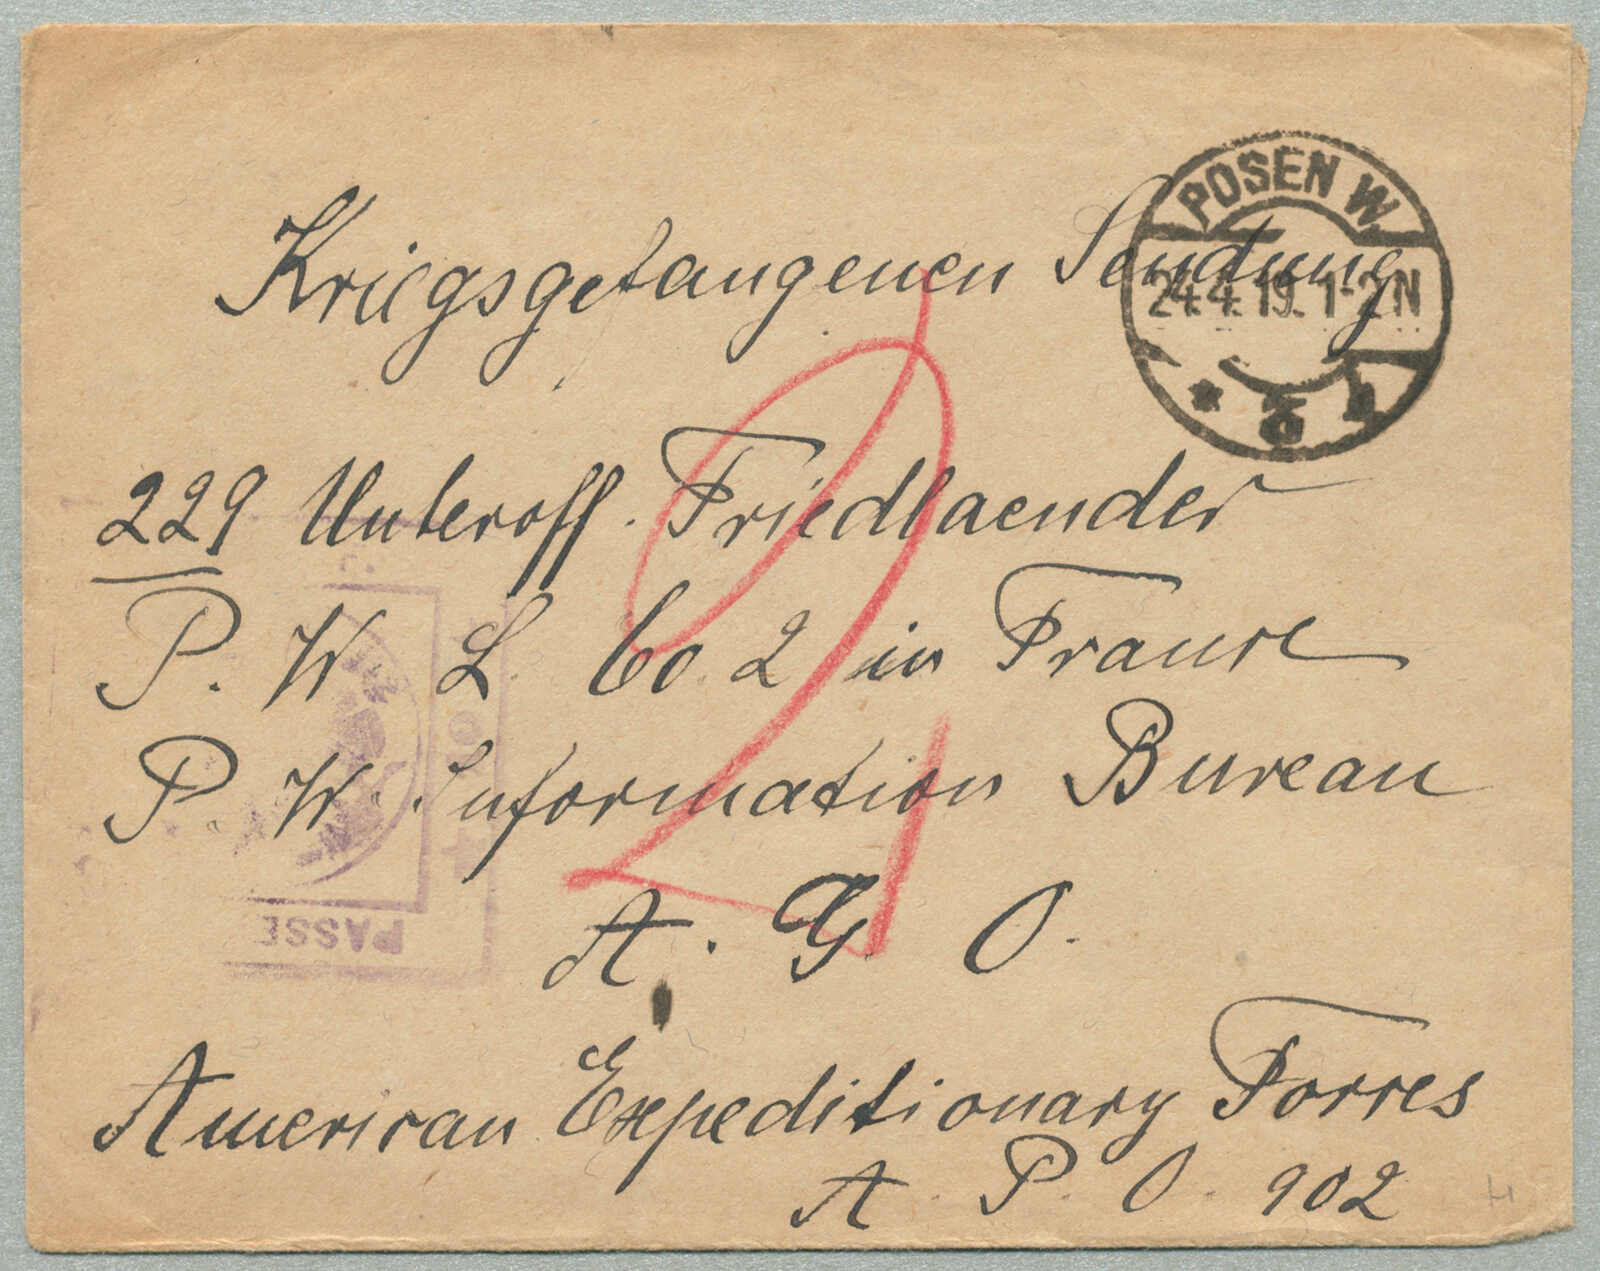 Kriegsgefangenen Sendung
POSEN W
24.4.19. 1-2 N
* ö 1
229 Unteroff. Friedlaender
P. W. L. Co. 2 in France
P. W. Information Bureau
A. G. O.
American Expeditionary Forces
A. P. O. 902
PASSE